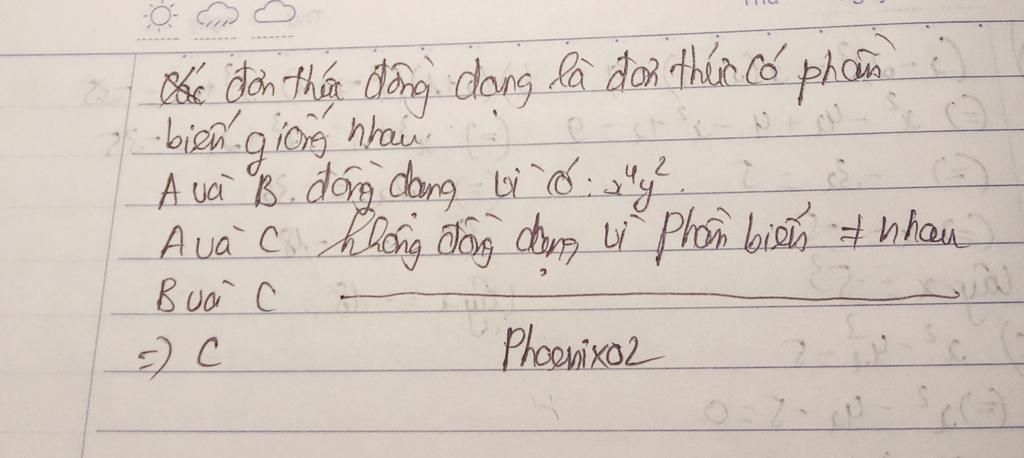 Các đơn thức đồng dạng là đơn thức có phần
biến giống nhau.
A và B đồng dạng vì có: x⁴y².
A và C không đồng dạng vì phần biến ≠ nhau
B và C ————————
=> C Phoenix02